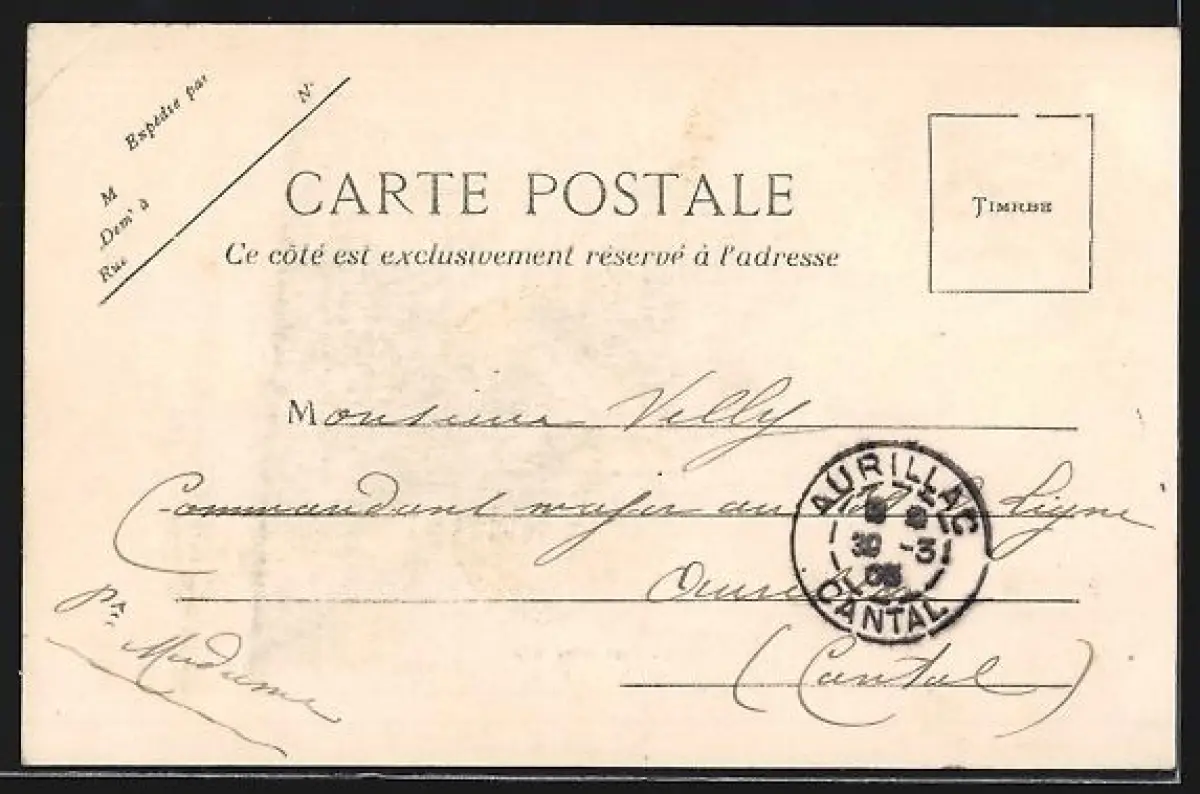 Expédié par
M N°
Demt à
Rue
CARTE POSTALE
Ce côté est exclusivement réservé à l'adresse
TIMBRE
Monsieur Velly
Commandant major au Ligne
AURILLAC
30 -3
CANTAL
(Cantal)
Pr
Madame